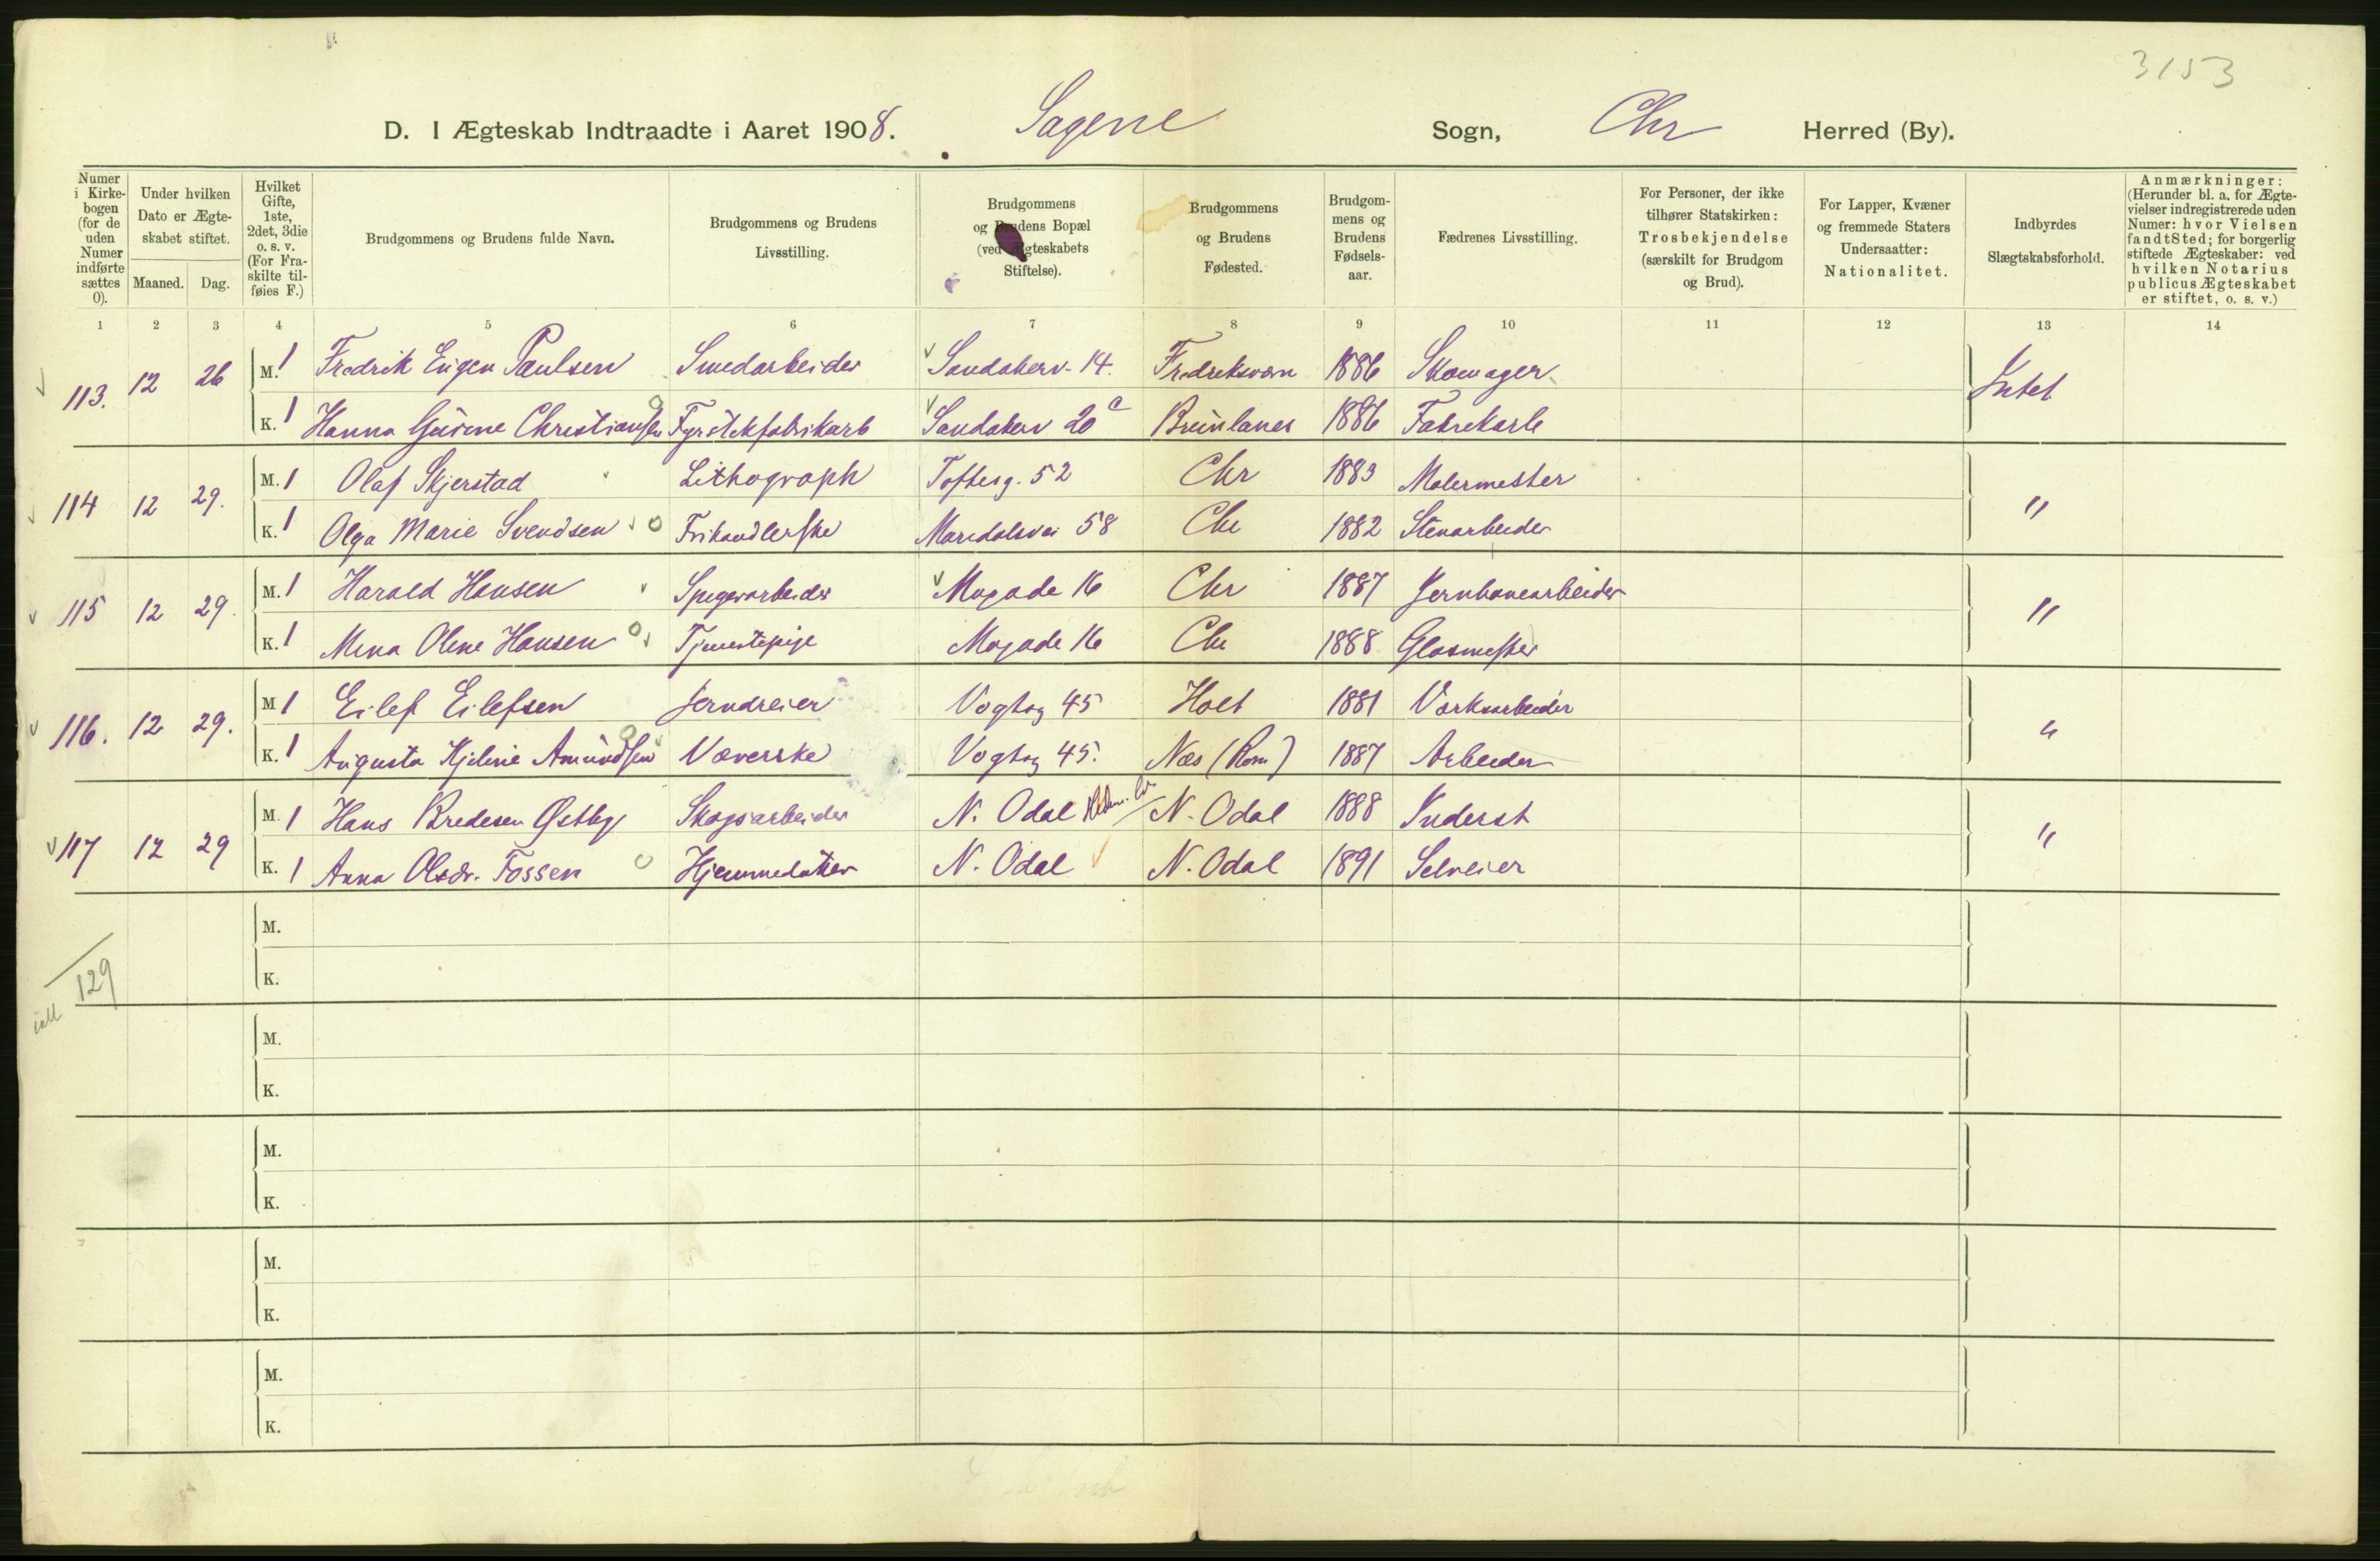 3153
D. I Ægteskab Indtraadte i Aaret 1908. Sagene Sogn, Chr Herred (By).
Numer i Kirkebogen (for de uden Numer indførte sættes 0).
Under hvilken Dato er Ægteskabet stiftet.
Maaned. Dag.
Hvilket Gifte, 1ste, 2det, 3die o. s. v. (For Fraskilte tilføies F.)
Brudgommens og Brudens fulde Navn.
Brudgommens og Brudens Livsstilling.
Brudgommens og Brudens Bopæl (ved Ægteskabets Stiftelse).
Brudgommens og Brudens Fødested.
Brudgommens og Brudens Fødselsaar.
Fædrenes Livsstilling.
For Personer, der ikke tilhører Statskirken: Trosbekjendelse (særskilt for Brudgom og Brud).
For Lapper, Kvæner og fremmede Staters Undersaatter: Nationalitet.
Indbyrdes Slægtskabsforhold.
Anmærkninger: (Herunder bl. a. for Ægtevielser indregistrerede uden Numer: hvor Vielsen fandt Sted; for borgerlig stiftede Ægteskaber: ved hvilken Notarius publicus Ægteskabet er stiftet, o. s. v.)
1 2 3 4 5 6 7 8 9 10 11 12 13 14
113. 12 26 M. 1 Fredrik Eugen Paulsen Smedarbeider Sandakerv. 14. Fredriksværn 1886 Skomager Intet
K. 1 Hanna Christiansen Fyrstikfabrikarb Sandakerv 20 a Brunlanes 1886 Fabrekarb
114 12 29. M. 1 Olaf Skjerstad Lithograph Toftesg. 52 Chr 1883 Malermester "
K. 1 Olga Marie Svendsen Frihandlerske Maridalsvei 58 Chr 1882 Stenarbeider
115 12 29. M. 1 Harald Hansen Spigerarbeider Mogade 16 Chr 1887 Jernbanearbeider "
K. 1 Mina Oline Hansen Tjenestepige Mogade 16 Chr 1888 Glasmester
116. 12 29. M 1 Eilef Eilefsen Jerndreier Vogtsg 45 Holt 1881 Værksarbeider "
K. 1 Augusta Amundsen Væverske Vogtsg 45. Næs (Rom) 1887 Arbeider
117 12 29 M. 1 Hans Bredesen Østby Skogsarbeider N. Odal N. Odal 1888 Inderst "
K. 1 Anna Olsdr. Fossen Hjemmedatter N. Odal N. Odal 1891 Selveier
M.
K.
129
ialt
M.
K.
M.
K.
M.
K.
M.
K.